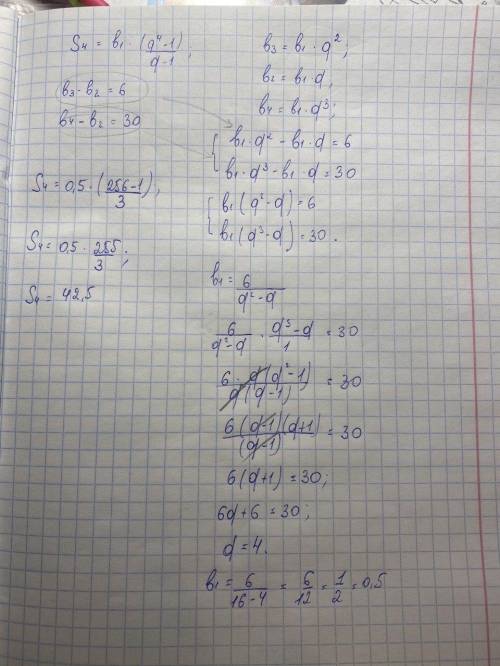 S₄ = b₁ · (q⁴-1)/(q-1) ;
b₃ - b₂ = 6
b₄ - b₂ = 30
S₄ = 0,5 · (256-1)/3 ;
S₄ = 0,5 · 255/3 ;
S₄ = 42,5
b₃ = b₁ · q² ;
b₂ = b₁ · q,
b₄ = b₁ · q³ ;
{ b₁ · q² - b₁ · q = 6
b₁ · q³ - b₁ · q = 30
{ b₁ (q² - q) = 6
b₁ (q³ - q) = 30 .
b₁ = 6/(q² - q)
6/(q² - q) · (q³ - q)/1 = 30
6 · q (q² - 1)/(q (q - 1)) = 30
6 (q - 1)(q + 1)/(q - 1) = 30
6 (q + 1) = 30 ;
6q + 6 = 30 ;
q = 4 .
b₁ = 6/(16 - 4) = 6/12 = 1/2 = 0,5